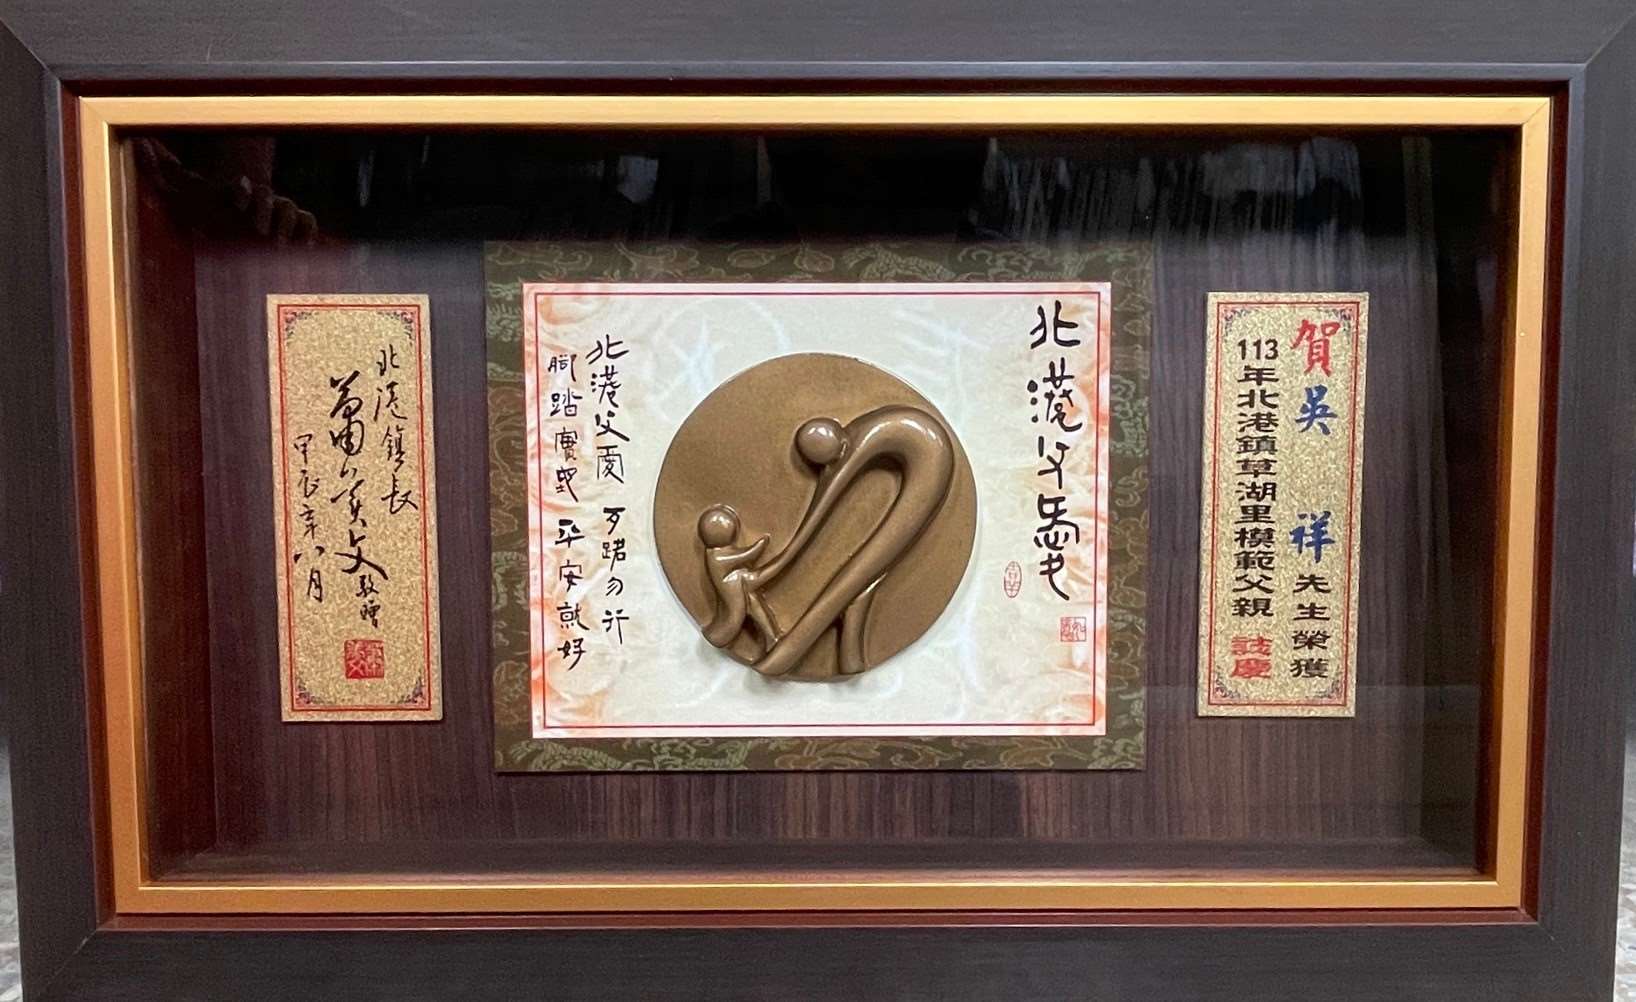 賀吳 祥先生榮獲
113年北港鎮草湖里模範父親 誌慶
北港父
北港父愛 歹路勿行
腳踏實地 平安就好
北港鎮長
蕭美文敬贈
甲辰年八月